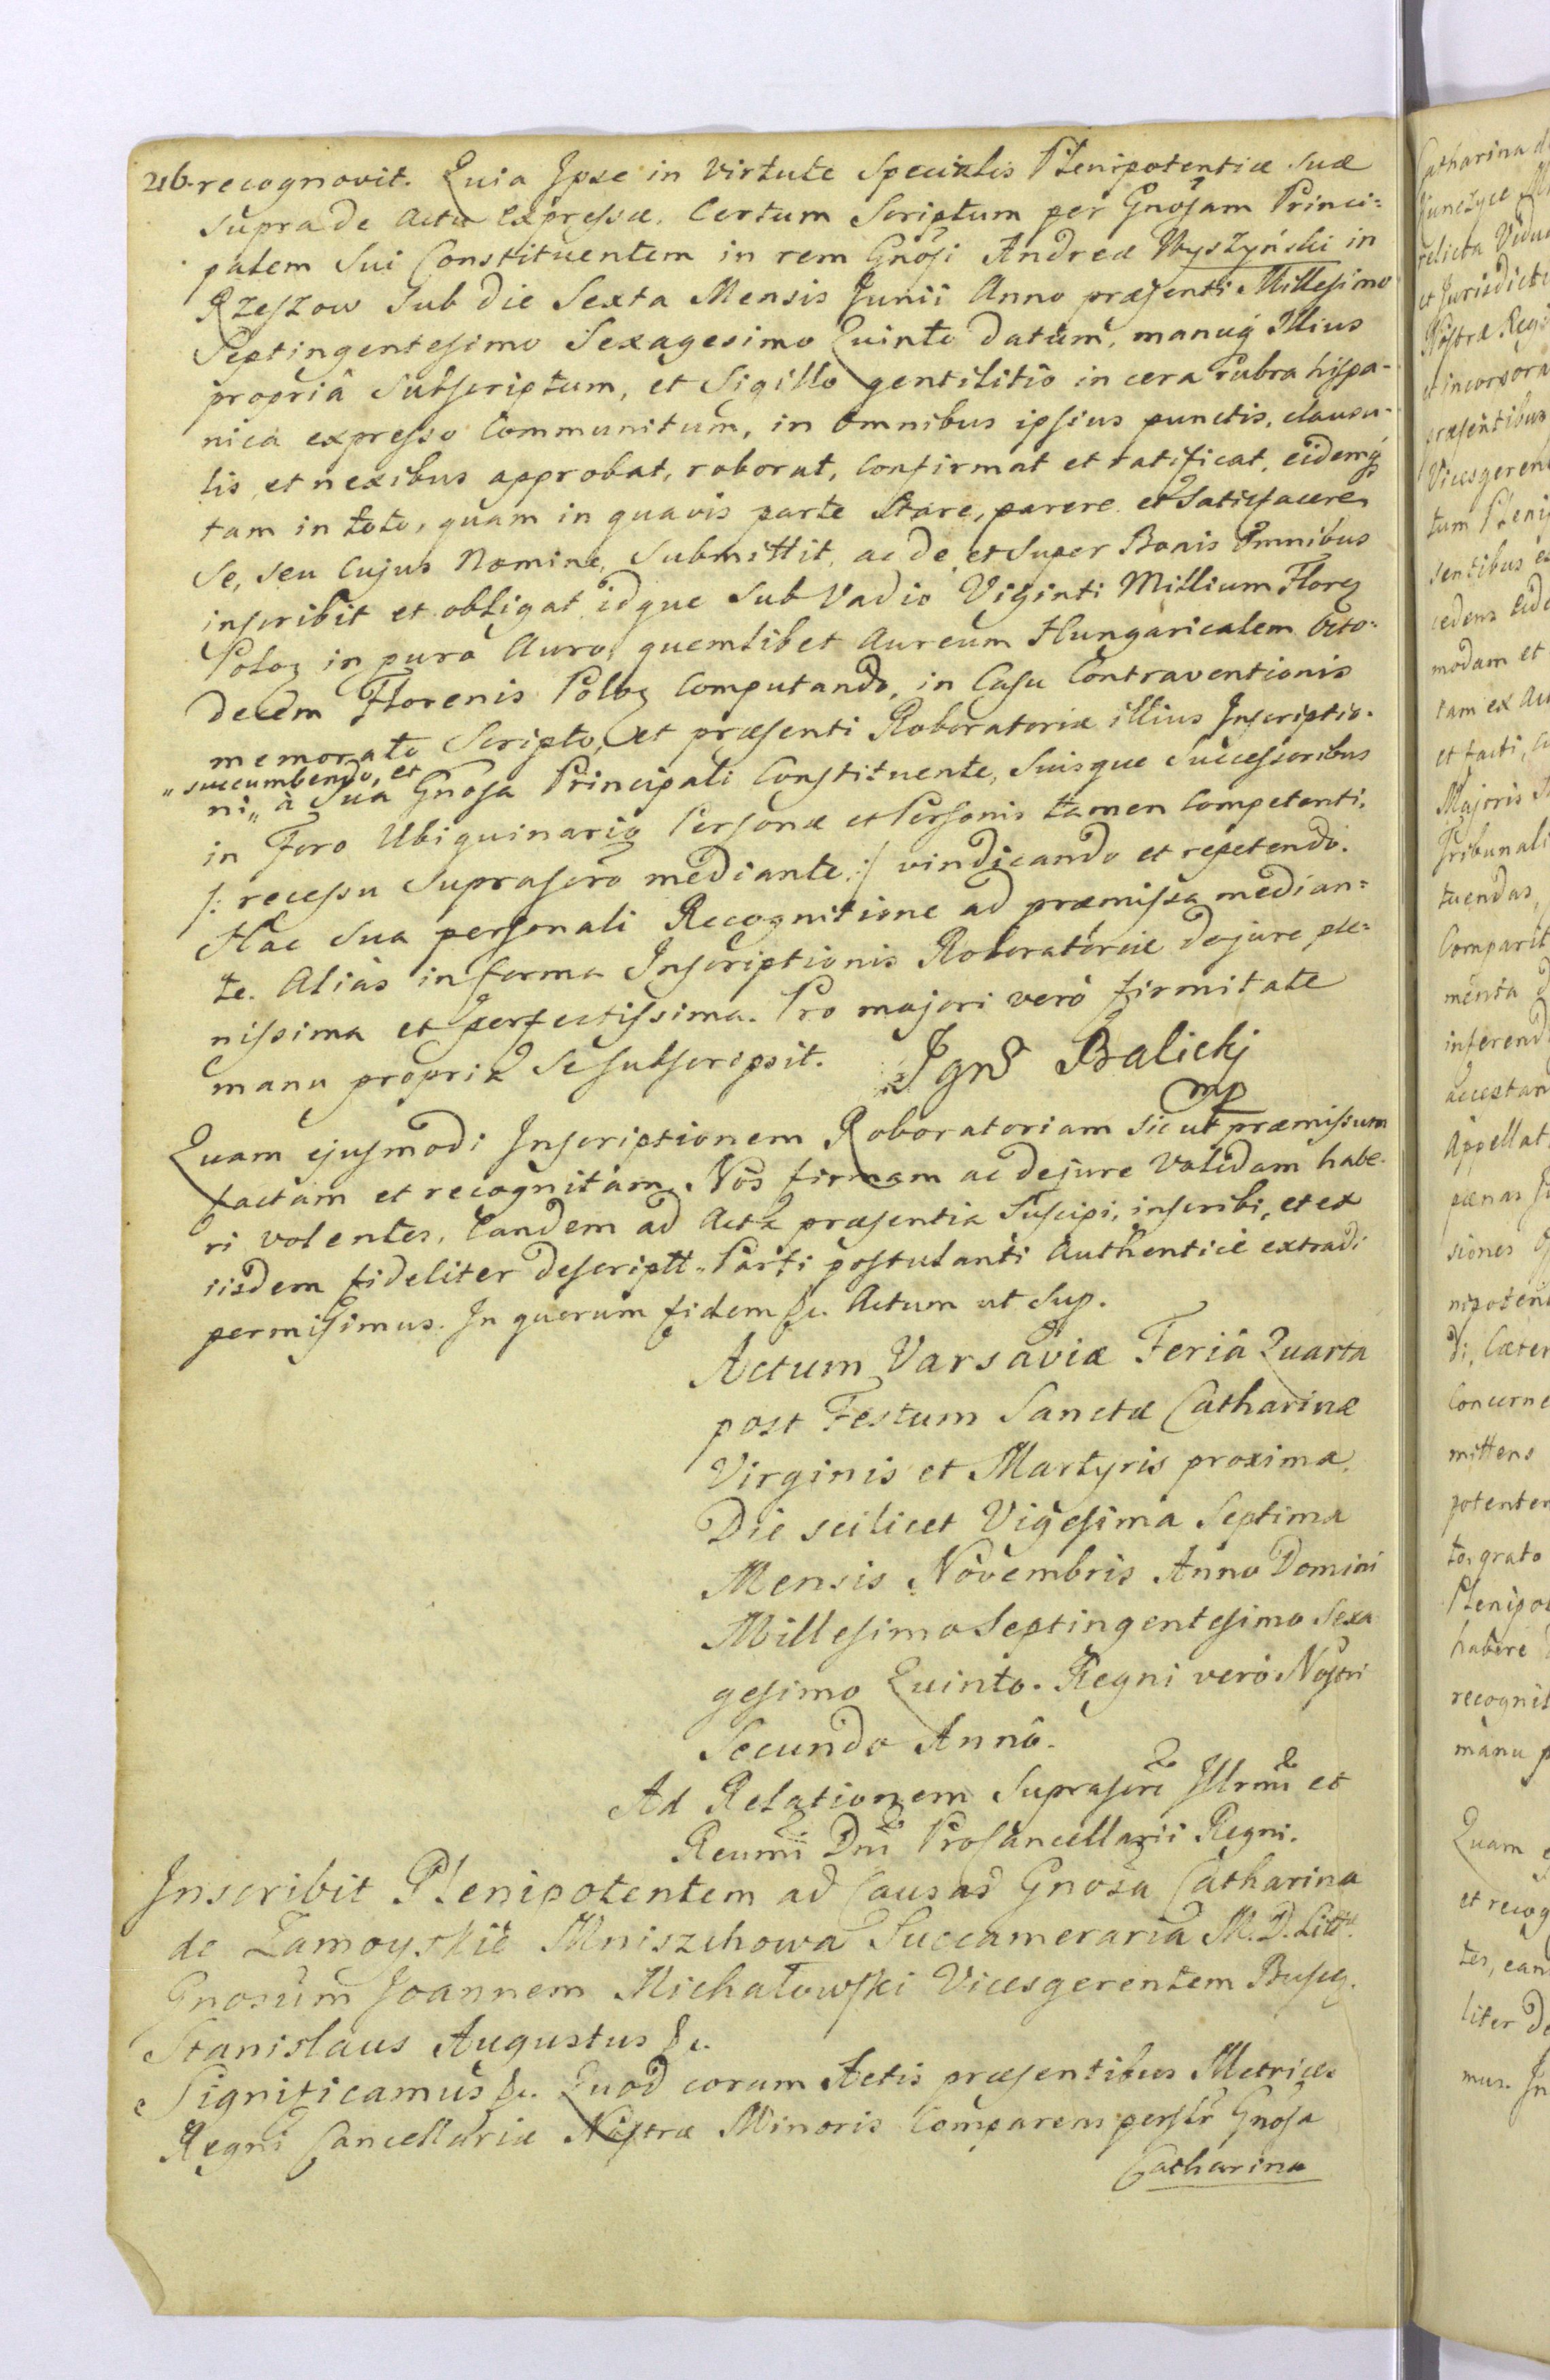 216. recognovit. Quia Ipse in virtute Specialis Plenipotentiæ suæ
supra de actu expressæ. Certum Scriptum per Gnosam Princi=
palem Sui Constituentem in rem Gnosi Andreæ Wyszyński in
Rzeszow Sub die Sexta Mensis Junii Anno præsenti Millesimo
Septingentesimo Sexagesimo Quinto datum, manuq Illius
propriâ Subscriptum, et Sigillo gentilitio in cera rubra hispa-
nica expresso Communitum, in omnibus ipsius punctis, clausu-
lis et nexibus approbat, roborat, confirmat et ratificat, eidemq
tam in toto, quam in quavis parte Stare, parere et Satisfacere
Se, seu cujus Nomine, Submittit, ac de et Super Bonis Omnibus
inscribit et obligat idque Sub Vadio Viginti Millium Florz
Poloz in puro Auro, quemlibet Aureum Hungaricalem Octo=
decem Florenis Poloz Computando, in Casu Contraventionis
memorato Scripto, et præsenti Roboratoriæ illius Inscriptio-
"succumbendo, et
ni" à Sua Gnosa Principali Constituente, Suisque Successoribus
in Foro Ubiquinario Personæ et Personis tamen Competenti,
/: recessu Suprascro mediante :/ vindicando et repetendo.
Hac Sua personali Recognitione ad præmissa median=
te. Aliàs in forma Inscriptionis Roboratoriæ de jure ple=
nissima et perfectissima. Pro majori verò firmitate
manu propria Se subscripsit. IgnS Balickj
mp
Quam ejusmodi Inscriptionem Roboratoriam sic ut præmissum
factam et recognitam. Nos firmam ac de jure Validam habe-
ri volentes, Eandem ad Acta præsentia Suscipi, inscribi, et ex
iisdem fideliter descriptt. Parti postulanti Authenticè extradi
permisimus. In quorum fidem &c. Actum ut Sup.
Actum Varsaviæ Feriâ Quarta
post Festum Sanctæ Catharinæ
Virginis et Martyris proxima.
Die scilicet Vigesima Septima
Mensis Novembris Anno Domini
Millesimo Septingentesimo Sexa
gesimo Quinto. Regni verò Nostri
Secundo Annô.
Ad Relationem Suprascri Illrmi et
Reumi Dni ProCancellarii Regni.
Inscribit Plenipotentem ad Causas Gnosa Catharina
de Zamoyskie Mniszchowa Succameraria M. D. Litt.
Gnosum Joannem Michałowski Vicesgerentem Busco.
Stanislaus Augustus &c.
Significamus &c. Quod coram Actis præsentibus Metrices
Regni Cancellariæ Nostræ Minoris Comparens perslr Gnosa
Catharina
Catharina d
relicta Vidu
et Jurisdicti
Nostræ Regi
et incorpora
præsentibus
Vicesgeren
tum Pleni
sentibus e
cedens
modam et
tam ex Ac
et facti,
Majoris
Tribunali
tuendas,
Comparit
menta
inferend
acceptan
Appellat
pænas
siones
nipoten
di, Cæter
Concerne
mittens
potenter
to, grato
Plenipo
habere
recognit
manu p
Quam
et recog
tes, ean
liter de
mus. In